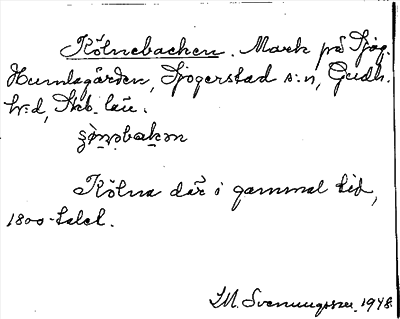 Kölnebacken. Mark på Sjög.
Humlagården, Sjogerstad s:n, Gudh.
h:d, Skb. län.
Kölna där i gammal tid,
1800-talet.
M. Svenungsson. 1948